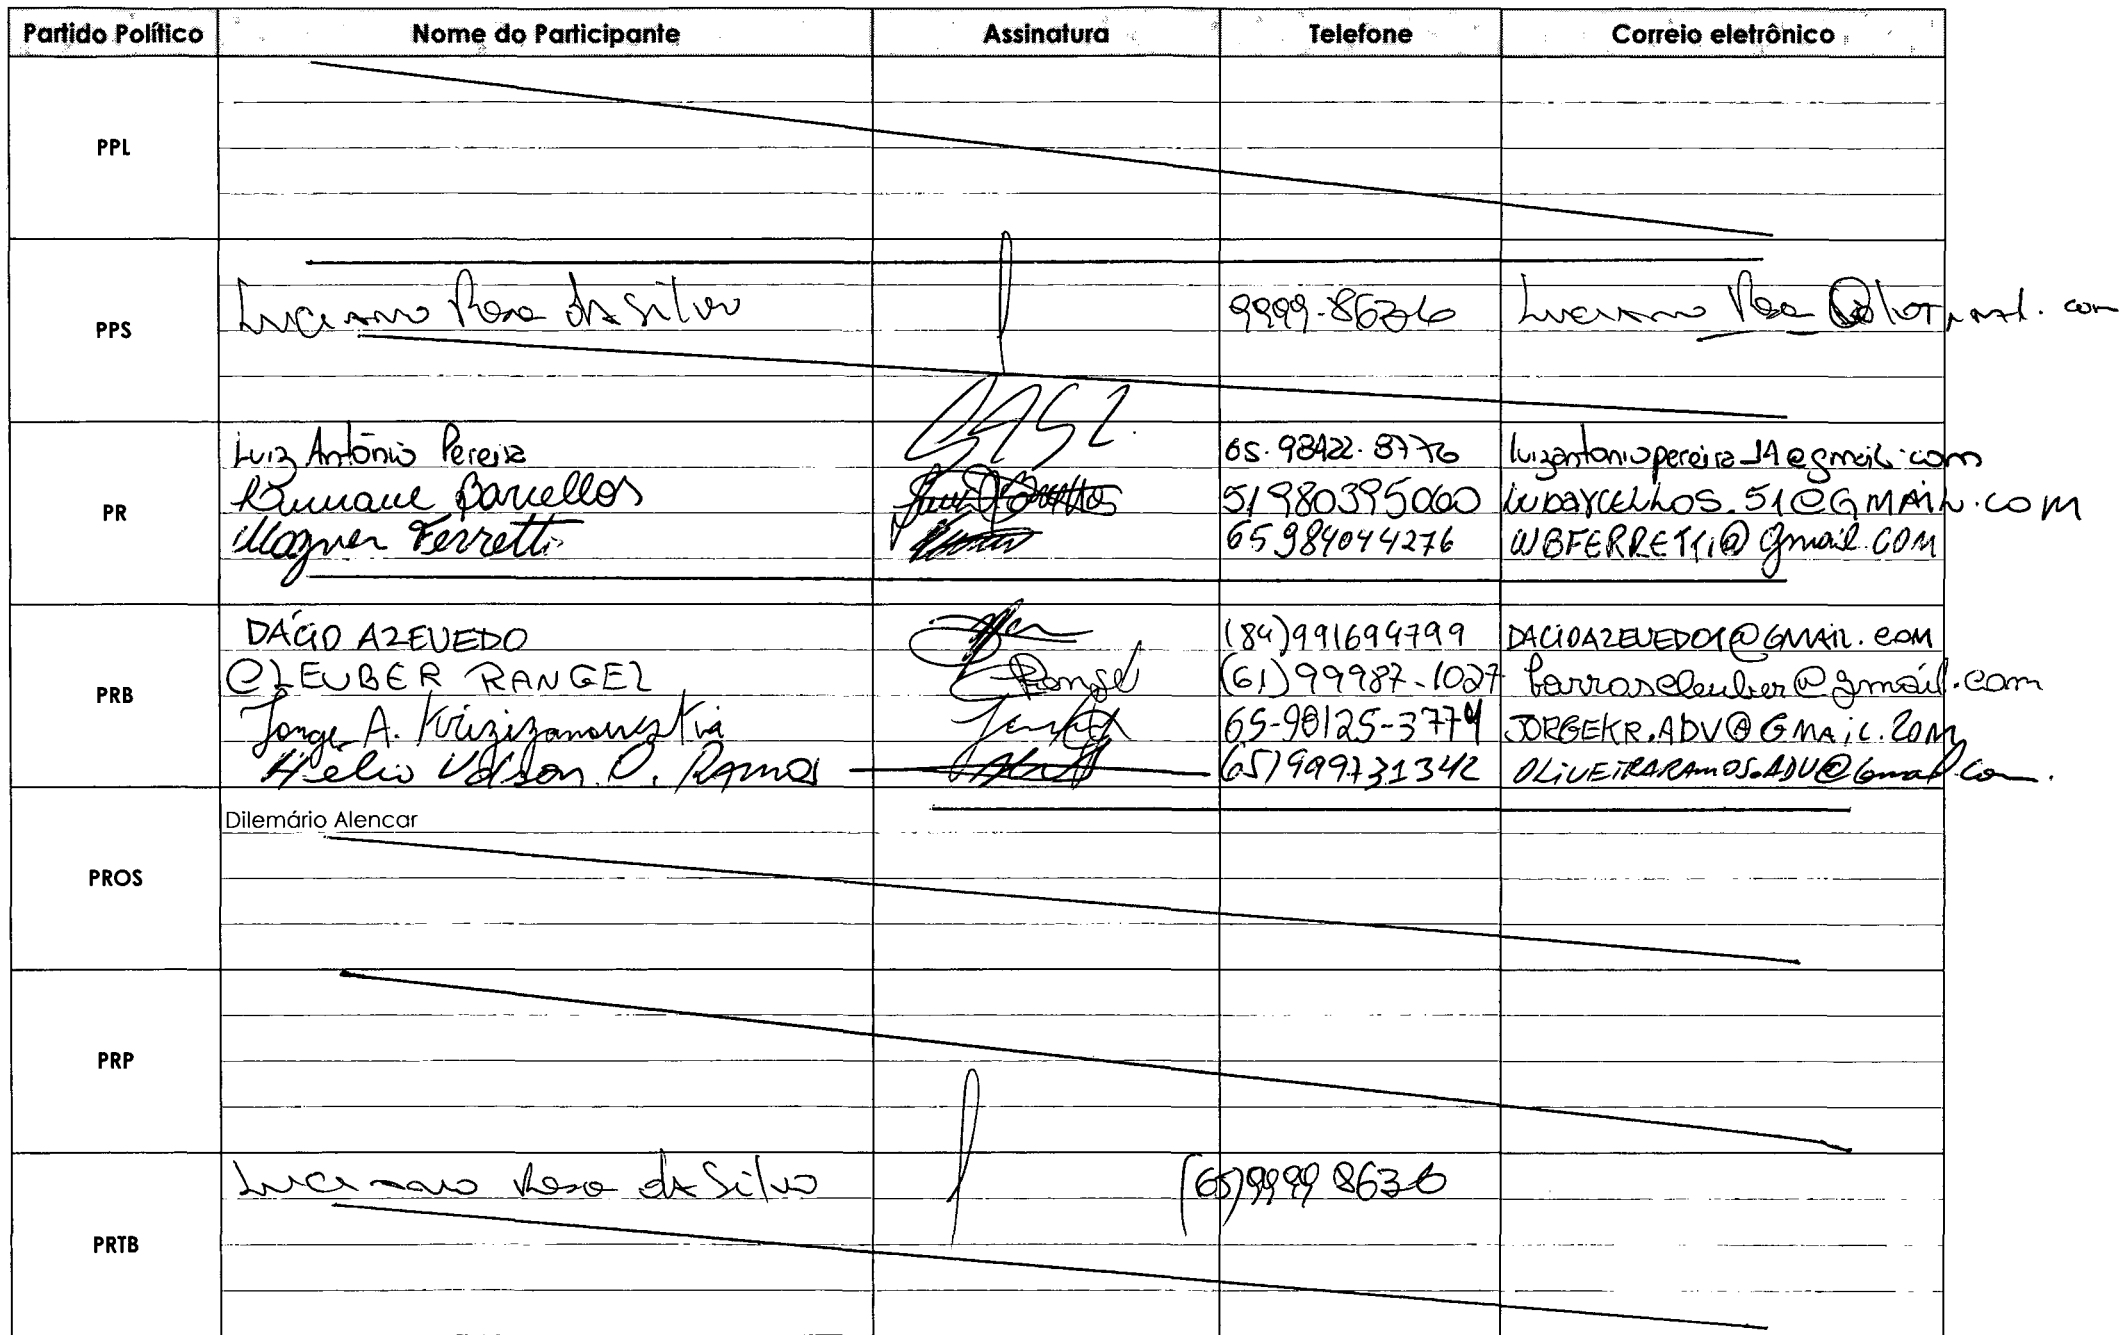 Partido Político Nome do Participante Assinatura Telefone Correio eletrônico
PPL
PPS Luciano Rosa da Silva 9999-8636 Luciano Rosa @hotmail.com
PR
Luiz Antônio Pereira 65.98422.8776 luizantoniopereira_14@gmail.com
Barcellos 51980395060 lubarcellos.51@GMAIL.COM
Wagner Ferretti 65984044276 WBFERRETTI@gmail.COM
PRB
DÁCIO AZEVEDO (84)991694799 DACIOAZEVEDO1@GMAIL.COM
CLEUBER RANGEL Rangel (61)99987-1027 barroscleuber@gmail.com
Jorge A. 65-98125-3774 JORGEKR.ADV@GMAIL.COM
Helio Udson O. Ramos (65)999731342 OLIVEIRARAMOS.ADV@Gmail.com.
PROS Dilemário Alencar
PRP
PRTB Luciano Rosa da Silva (65)9999 8636